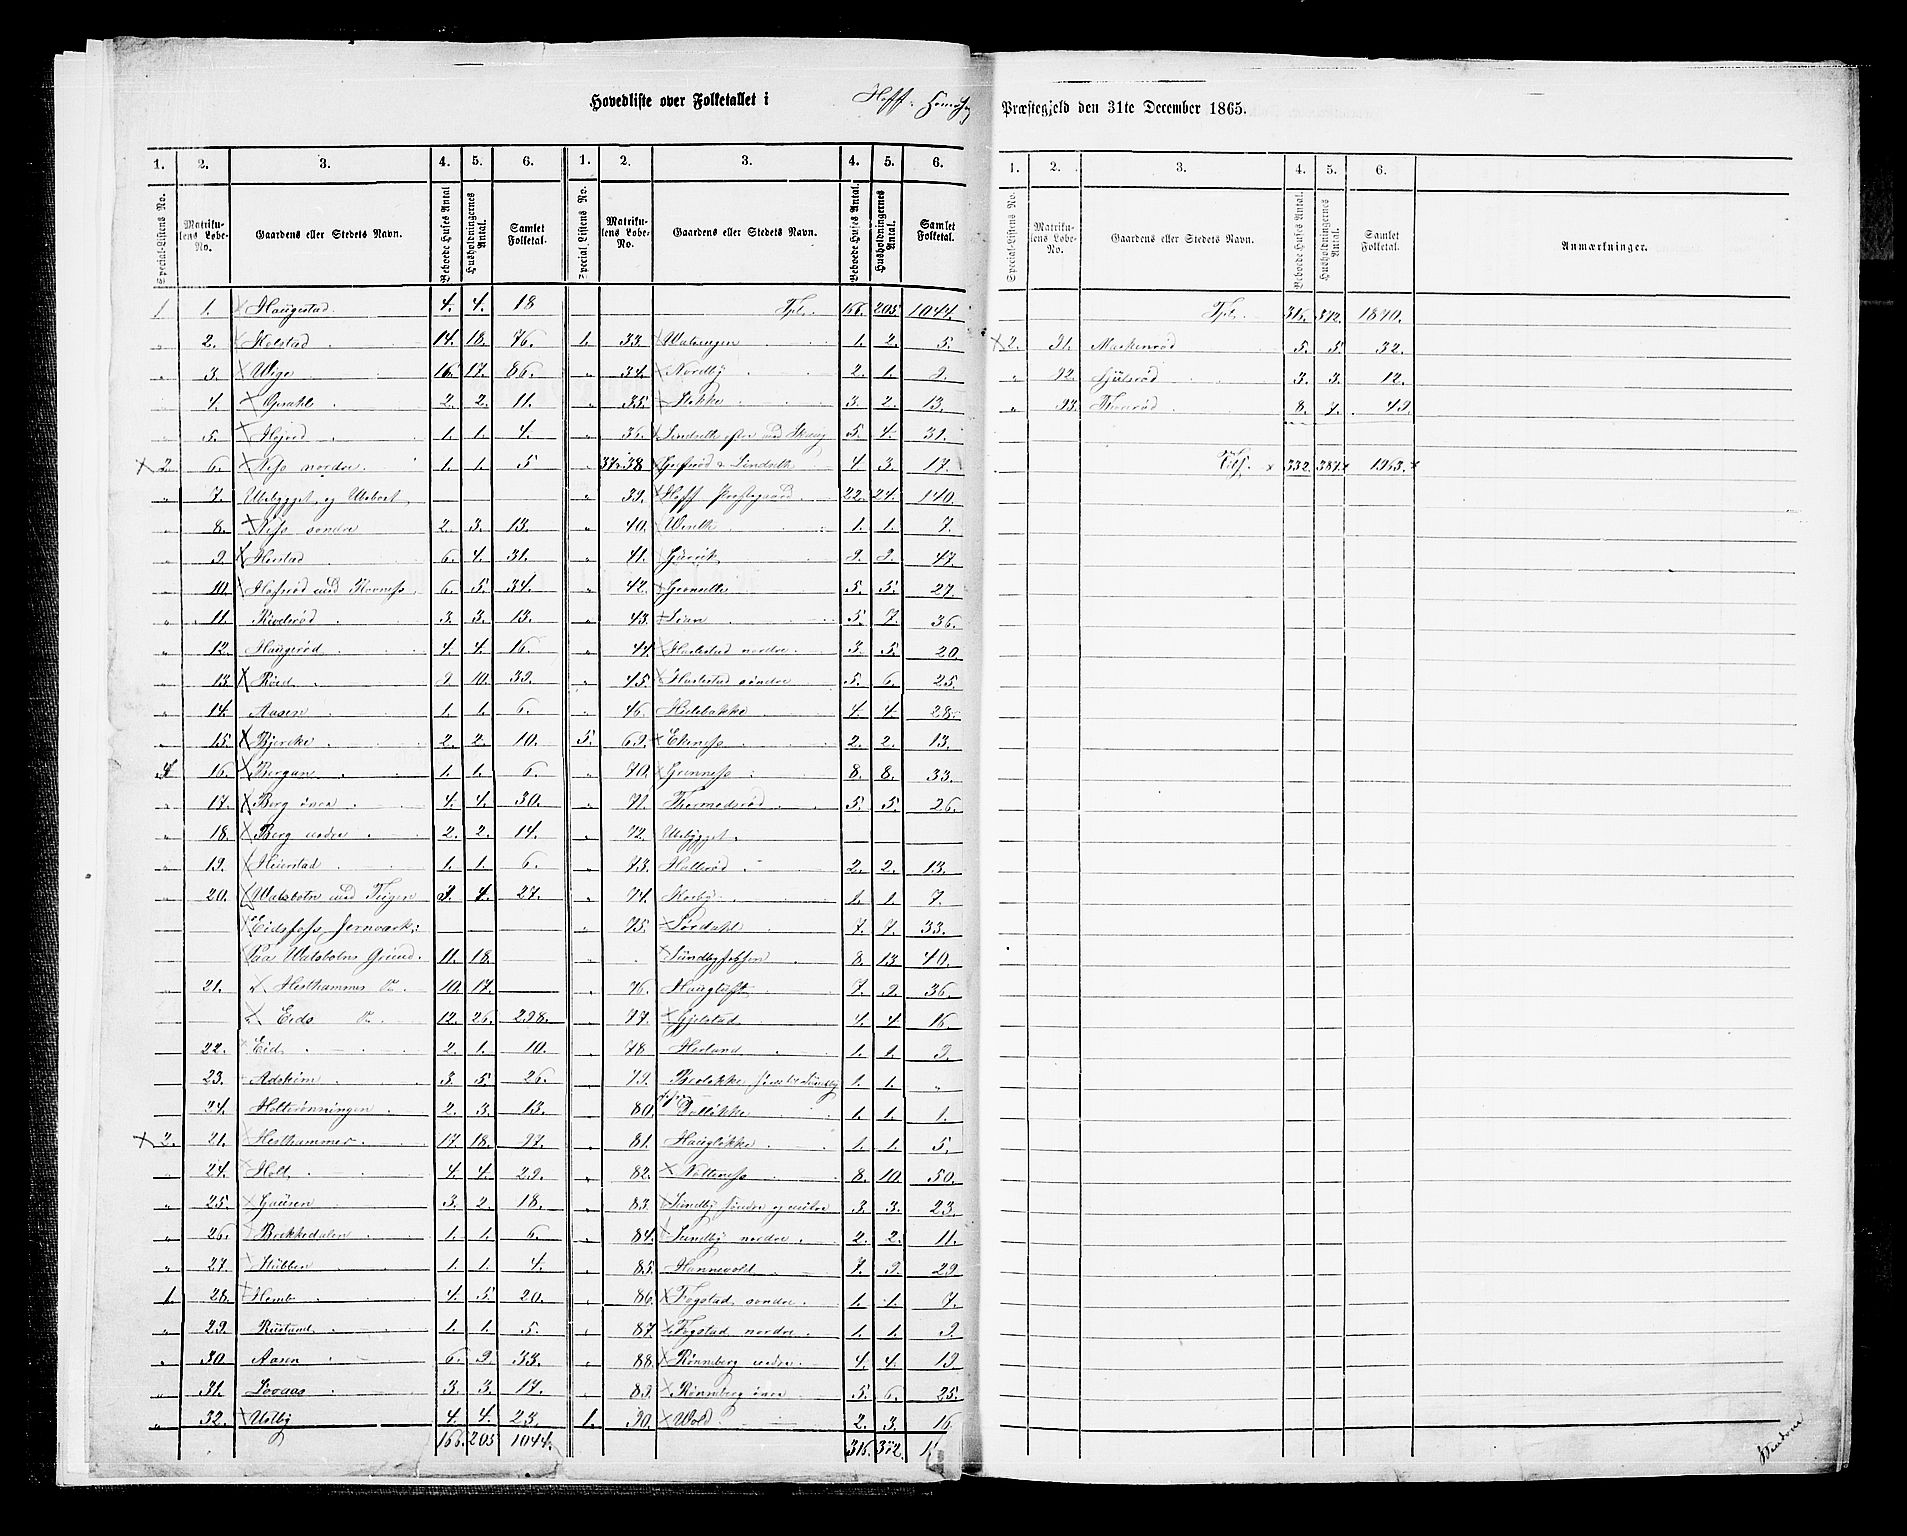 Hovedliste over Folketallet i Hoff
Præstegjeld den 31te December 1865.
1. 2. 3. 4. 5. 6. 1. 2. 3. 4. 5. 6.
Special-Listens No. Matrikulens Løbe-No. Gaardens eller Stedets Navn. Beboede Huses Antal Husholdningernes Antal. Samlet Folketal. Special Listens No. Matrikulens Løbe-No. Gaardens eller Stedets Navn. Beboede Huses Antal. Husholdningernes Antal. Samlet Folketal.
1 1. Haugestad. 4. 4. 18
„ 2. Holstad 14. 18. 76.
„ 3. Wige 16. 17. 86.
4. Grahl 2. 2. 11.
„ 5. 1. 1. 4.
2. 6. Ness nordre. 1. 1. 5
„ 7. Ubebygget og Ubeboet
„ 8. Ness søndre 2. 3. 13.
„ 9. Horstad 6. 4. 31.
„ 10. Hofsrød med 6. 5. 34.
„ 11. 3. 3. 13.
„ 12. Haugerød 4. 4. 16.
„ 13. Røed 9 10. 39.
„ 14. Aasen 1. 1. 6.
„ 15. Bjercke 2. 2. 10.
4 16. Bergan 1. 1. 6.
„ 17. Berg øvre 4. 4. 30.
„ 18. Berg nedre 2. 2. 14.
„ 19. Heierstad 1. 1. 6.
„ 20. Walsbotn med Teigen 3. 4. 27.
Eidsfoss Jernværk:
Paa Walsbotns Grund. 11. 18.
21. Hesthammer 10. 17.
Eids 12. 26. 298.
22. Eid 2. 1. 10.
23. Adskim 3. 5. 26.
24. Holterønningen 2. 3. 13.
2. 21. Hesthammer. 17. 18. 97.
„ 24. Holt 4. 4. 29.
„ 25. Gausen 3. 2. 18.
„ 26. Brekkedalen 1. 1. 6.
„ 27. Stubben 1. 1. 4.
1. 28. Hemb 4. 5. 20.
„ 29. Rustand 1. 1. 5.
„ 30. Aasen 6. 9. 33.
„ 31. Lovaas 3. 3. 17.
„ 32. 4. 4. 23.
166. 205 1044.
166. 205 1044.
1. 33. 1. 2. 5.
„ 34. Nordby 2. 1. 9.
„ 35. Stokke 3. 2. 13.
„ 36. 5. 4. 31.
„ 37. 38. 4 3. 17.
„ 39. Hoff Prestegaard 22. 24. 140.
„ 40. 1. 1. 7.
„ 41. 9. 9. 47.
„ 42. 5. 5. 27.
„ 43. 5. 7. 36.
„ 44. Haslestad nordre. 3. 5. 20
„ 45. Haslestad søndre 5. 6. 25.
„ 46. Hillebakke 4. 4. 28.
5. 69. Ekeness 2. 2. 13.
„ 70. Grenness 8. 8. 33.
„ 71. Thormodsrød 5. 5. 26.
„ 72. Ubebygget.
„ 73. Holterød 2. 2. 13.
„ 74. 1. 1. 7.
„ 75. Sørdahl 7. 7. 33.
Sundbyfossen 8. 13 40.
„ 76. Haugtuft 7. 9. 36.
„ 77. Gjelstad 4. 4 16.
„ 78 Hesland 1. 1. 9.
„ 79. 1. 1. „
„ 80. 1. 1. 1.
„ 81. Hauglökke 1. 1. 5.
„ 82. Nolteness 8. 10. 50.
„ 83. Sundby søndre og midre 3. 3. 23.
„ 84. Sundby nordre 2. 2. 11.
„ 85. Hannevold 7. 9. 29
„ 86. Fogstad søndre. 1. 1. 7.
„ 87. Fogstad nordre. 1. 1. 9.
„ 88. Rønneberg nedre 4. 4. 19
„ 89. Rønneberg øvre 5. 6. 25.
1. 90. Wold. 2. 3. 16
316. 372. 1
1. 2. 3. 4. 5. 6.
Special-Listens No. Matrikulens Løbe-No. Gaardens eller Stedets Navn. Beboede Huses Antal. Husholdningernes Antal. Samlet Folketal. Anmærkninger.
316. 372. 1870.
2. 91. Maskenrød 5. 5. 32.
„ 92. 3. 3. 12.
„ 93. 8. 7. 49.
332. 387. 1963.